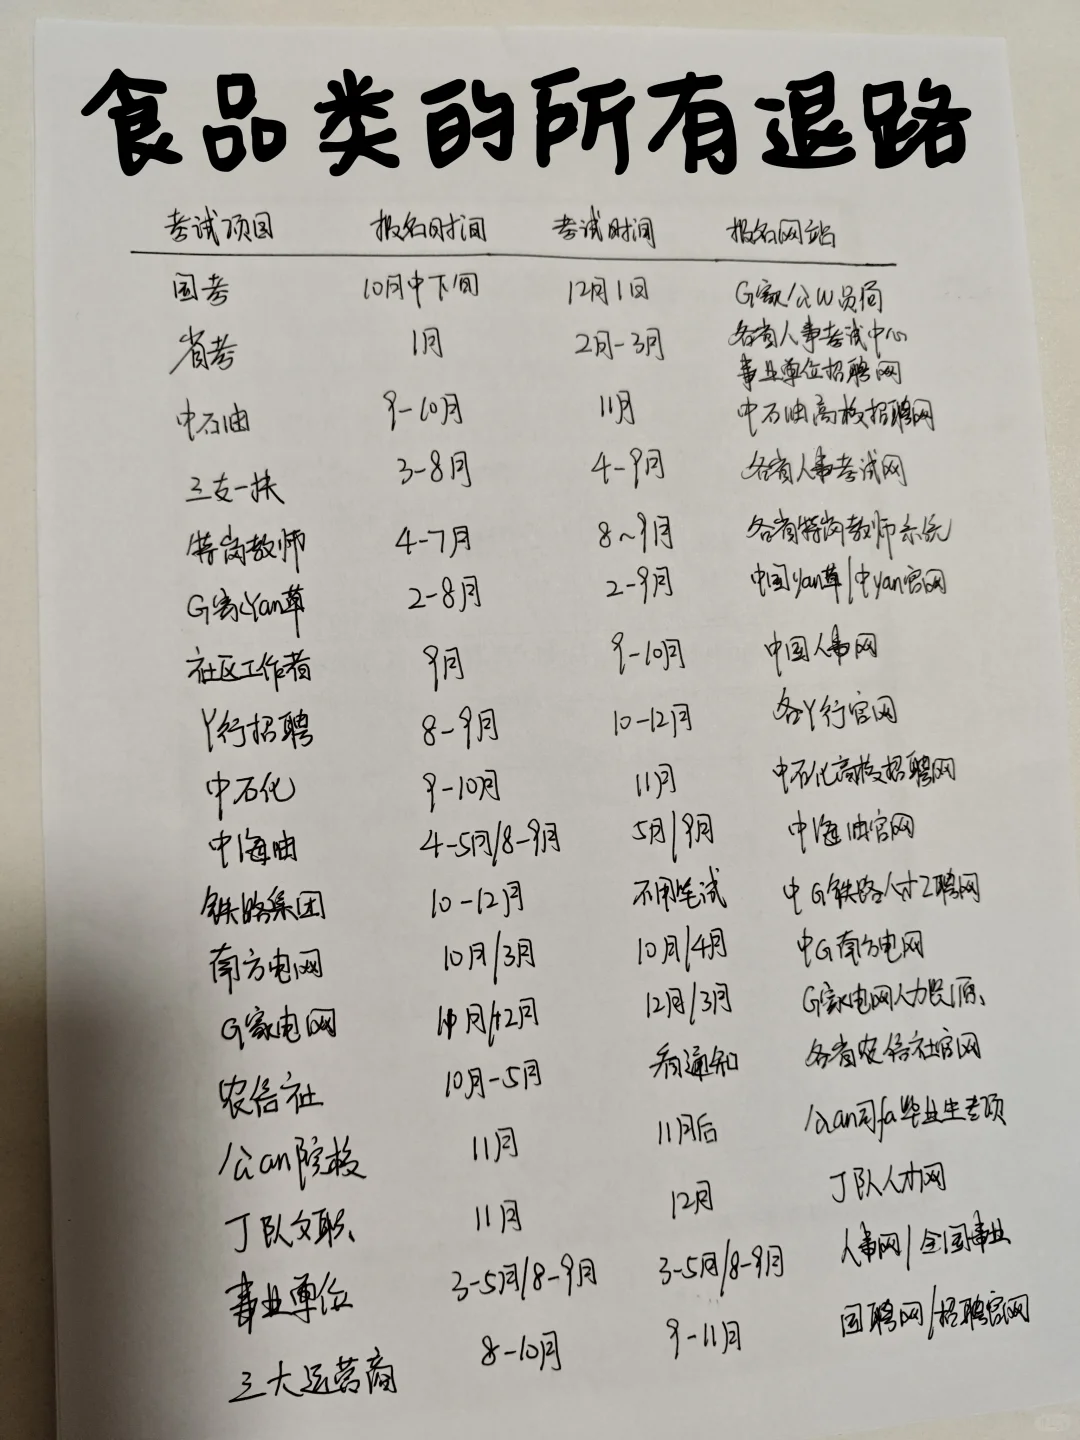 食品类的所有退路
考试项目 报名时间 考试时间 报名网站
国考 10月中下旬 12月1日 G家公W员局
省考 1月 2月-3月 各省人事考试中心
事业单位招聘网
中石油 9-10月 11月 中石油高校招聘网
三支一扶 3-8月 4-9月 各省人事考试网
特岗教师 4-7月 8~9月 各省特岗教师系统
G家Yan草 2-8月 2-9月 中国Yan草/中Yan官网
社区工作者 9月 9-10月 中国人事网
Y行招聘 8-9月 10-12月 各Y行官网
中石化 9-10月 11月 中石化高校招聘网
中海油 4-5月/8-9月 5月/9月 中海油官网
铁路集团 10-12月 不用笔试 中G铁路人才Z聘网
南方电网 10月/3月 10月/4月 中G南方电网
G家电网 月/2月 12月/3月 G家电网人力资源
农信社 10月-5月 看通知 各省农信社官网
公an院校 11月 11月后 公an司fa毕业生专项
J队文职 11月 12月 J队人才网
事业单位 3-5月/8-9月 3-5月/8-9月 人事网/全国事业
三大运营商 8-10月 9-11月 国聘网/招聘官网